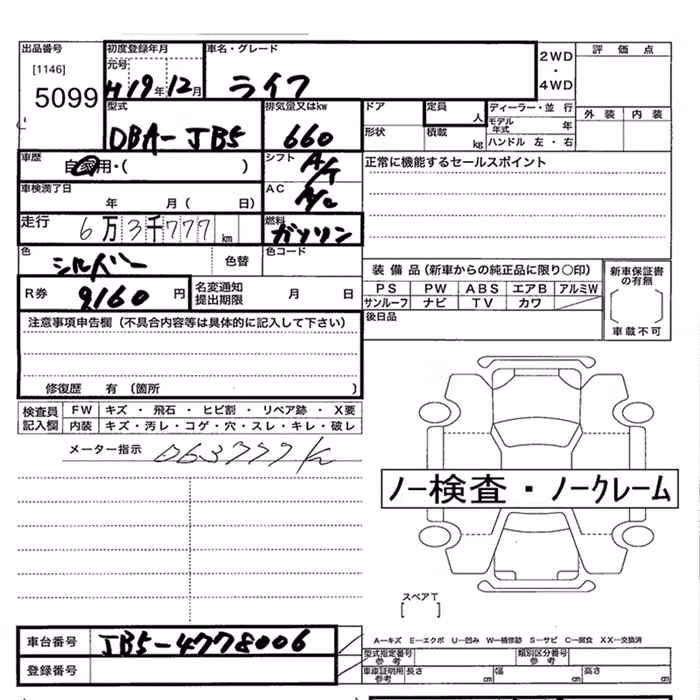 出品番号 初度登録年月 車名・グレード 2WD・4WD 評価点
[1146] 元号
5099 H19年12月 ライフ
型式 排気量又はkw ドア 定員 人 ディーラー・並行 外装 内装
DBA-JB5 660 形状 積載 kg モデル年式 年
ハンドル 左・右
車歴 自家用・( ) シフト A/T 正常に機能するセールスポイント
車検満了日 年 月( 日) AC A/C
走行 6万3千777km 燃料 ガソリン
色 シルバー 色替 色コード
装備品(新車からの純正品に限り〇印) 新車保証書の有無
R券 9160円 名変通知提出期限 月 日 PS PW ABS エアB アルミW
サンルーフ ナビ TV カワ
注意事項申告欄(不具合内容等は具体的に記入して下さい) 後日品 車載不可
修復歴 有(箇所 )
検査員記入欄 FW キズ・飛石・ヒビ割・リペア跡・X要
内装 キズ・汚レ・コゲ・穴・スレ・キレ・破レ
メーター指示 063777K
ノー検査・ノークレーム
スペアT
[ ]
車台番号 JB5-4778006 A–キズ E–エクボ U–凹み W–補修跡 S–サビ C–腐食 XX–交換済
登録番号 型式指定番号 参考 類別区分番号 参考
車庫証明用 参考 長さ cm 幅 cm 高さ cm